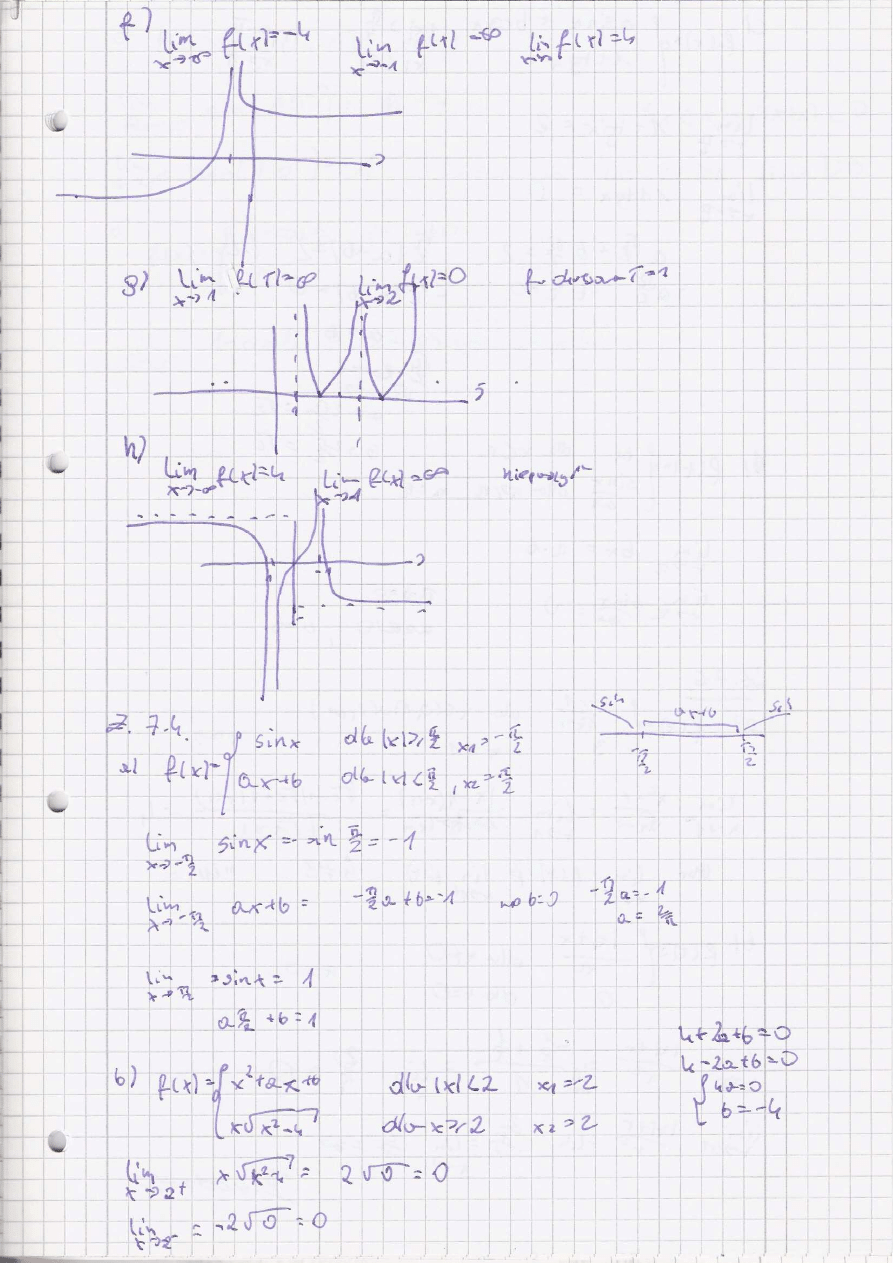 f) lim x→-∞ f(x)=-4 lim x→-1 f(x)=∞ lim x→∞ f(x)=4
g) lim x→1 f(x)=∞ lim x→2 f(x)=0 T=1
h) lim x→-∞ f(x)=4 lim x→1 f(x)=∞
Z. 7.4.
a) f(x)= { sinx dla |x|≥π/2 x1=-π/2
ax+b dla |x|<π/2, x2=π/2
sin ax+b sin
-π/2 π/2
lim x→-π/2 sinx = -sin π/2 = -1
lim x→-π/2 ax+b = -π/2a+b=-1 b=0 -π/2a=-1
a=2/π
lim x→π/2 sinx= 1
aπ/2+b=1
4+2a+b=0
4-2a+b=0
{ 4a=0
b=-4
b) f(x)= { x²+ax+b dla |x|<2 x1=-2
x√x²-4 dla x≥2 x2=2
lim x→2+ x√x²-4 = 2√0=0
lim x→2- = -2√0=0